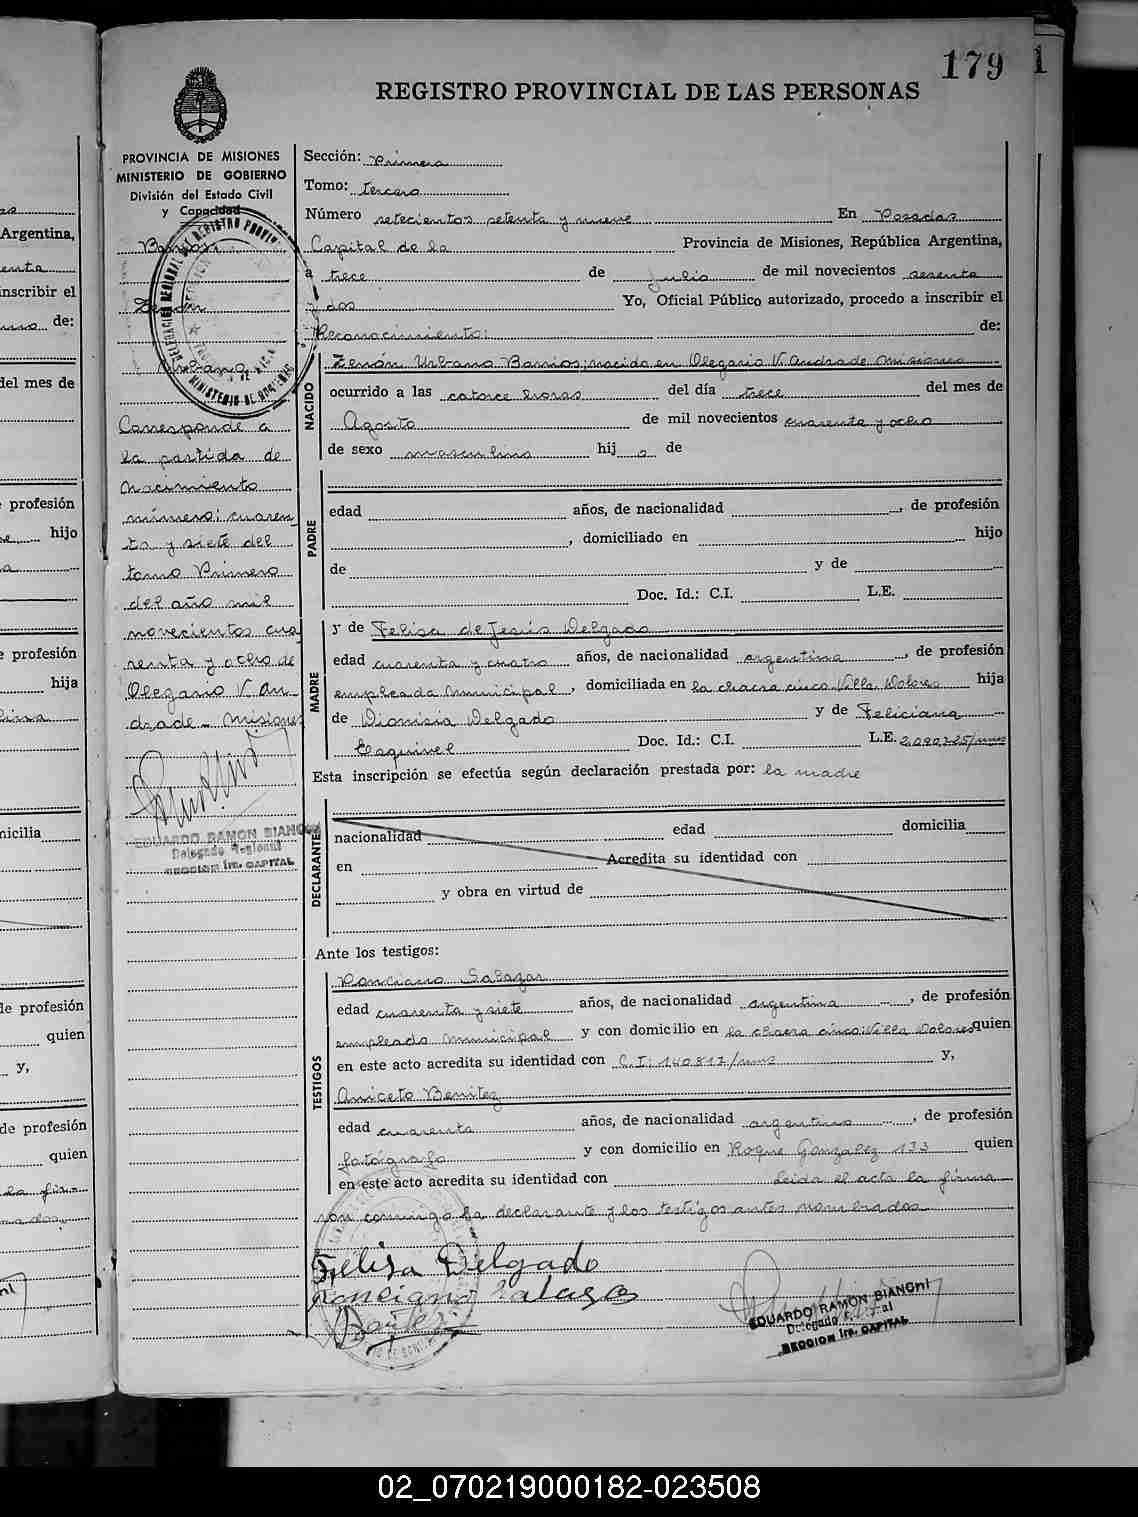 179
1
REGISTRO PROVINCIAL DE LAS PERSONAS
PROVINCIA DE MISIONES
MINISTERIO DE GOBIERNO
División del Estado Civil
y Capacidad
Barrios
Zenón
Urbano
Corresponde a
la partida de
Nacimiento
número: cuaren
ta y siete del
tomo Primero
del año mil
novecientos cua
renta y ocho de
Olegario V. An
drade - Misiones
EDUARDO RAMON BIANCHI
Delegado Regional
SECCION 1ra. CAPITAL
Sección: Primera
Tomo: tercero
Número setecientos setenta y nueve En Posadas
Capital de la Provincia de Misiones, República Argentina,
a trece de Julio de mil novecientos sesenta
y dos Yo, Oficial Público autorizado, procedo a inscribir el
Reconocimiento: de:
NACIDO
Zenón Urbano Barrios; nacido en Olegario V. Andrade Misiones
ocurrido a las catorce horas del día trece del mes de
Agosto de mil novecientos cuarenta y ocho
de sexo masculino hijo de
PADRE
edad años, de nacionalidad , de profesión
, domiciliado en hijo
de y de
Doc. Id.: C.I. L.E.
MADRE
y de Felisa de Jesús Delgado
edad cuarenta y cuatro años, de nacionalidad argentina , de profesión
empleada municipal , domiciliada en la chacra cinco Villa Dolores hija
de Dionisia Delgado y de Feliciana
Esquivel Doc. Id.: C.I. L.E. 2.090.225/mns
Esta inscripción se efectúa según declaración prestada por: la madre
DECLARANTE
nacionalidad edad domicilia
en Acredita su identidad con
y obra en virtud de
Ante los testigos:
TESTIGOS
Ponciano Salazar
edad cuarenta y siete años, de nacionalidad argentina , de profesión
empleado municipal y con domicilio en la chacra cinco: Villa Dolores quien
en este acto acredita su identidad con C.I: 140.817/mns y,
Aniceto Benitez
edad cuarenta años, de nacionalidad argentino , de profesión
fotógrafo y con domicilio en Roque Gonzalez 133 quien
en este acto acredita su identidad con Leida el acta la firma
ron conmigo la declarante y los testigos antes nombrados
Felisa Delgado
Ponciano Salazar
Benitez
EDUARDO RAMON BIANCHI
Delegado Regional
SECCION 1ra. CAPITAL
02_070219000182-023508